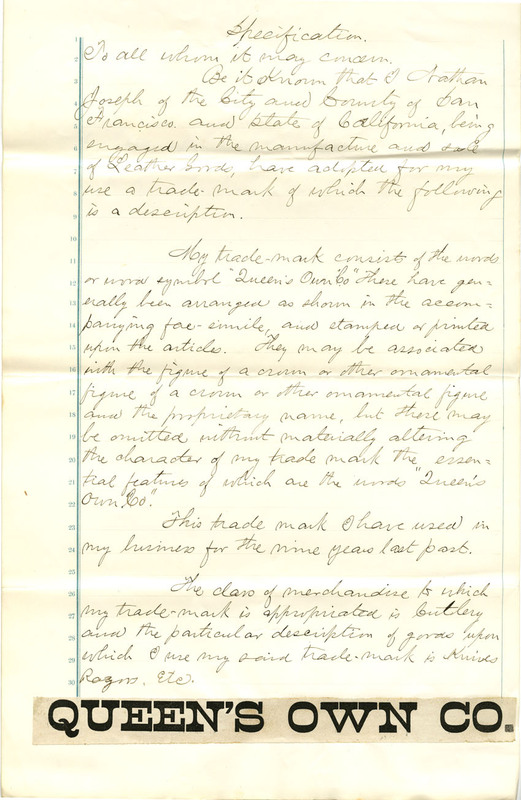 Specification.
To all whom it may concern.
Be it Known that I Nathan
Joseph of the City and County of San
Francisco. and State of California, being
engaged in the manufacture and sale
of Leather Goods, have adopted for my
use a trade-mark of which the following
is a description.
My trade-mark consist of the words
or word symbol "Queen's Own Co" These have gen=
erally been arranged as shown in the accom=
panying fac-simile, and stamped or printed
upon the article. They may be associated
with the figure of a crown or other ornamental
figure of a crown or other ornamental figure
and the proprietary name, but these may
be omitted without materially altering
the character of my trade mark the essen=
tial features of which are the words "Queen's
Own Co".
This trade mark I have used in
my business for the nine years last past.
The class of merchandise to which
my trade-mark is appropriated is Cutlery
and the particular description of goods upon
which I use my said trade-mark is Knives
Razors. Etc.
QUEEN'S OWN CO.